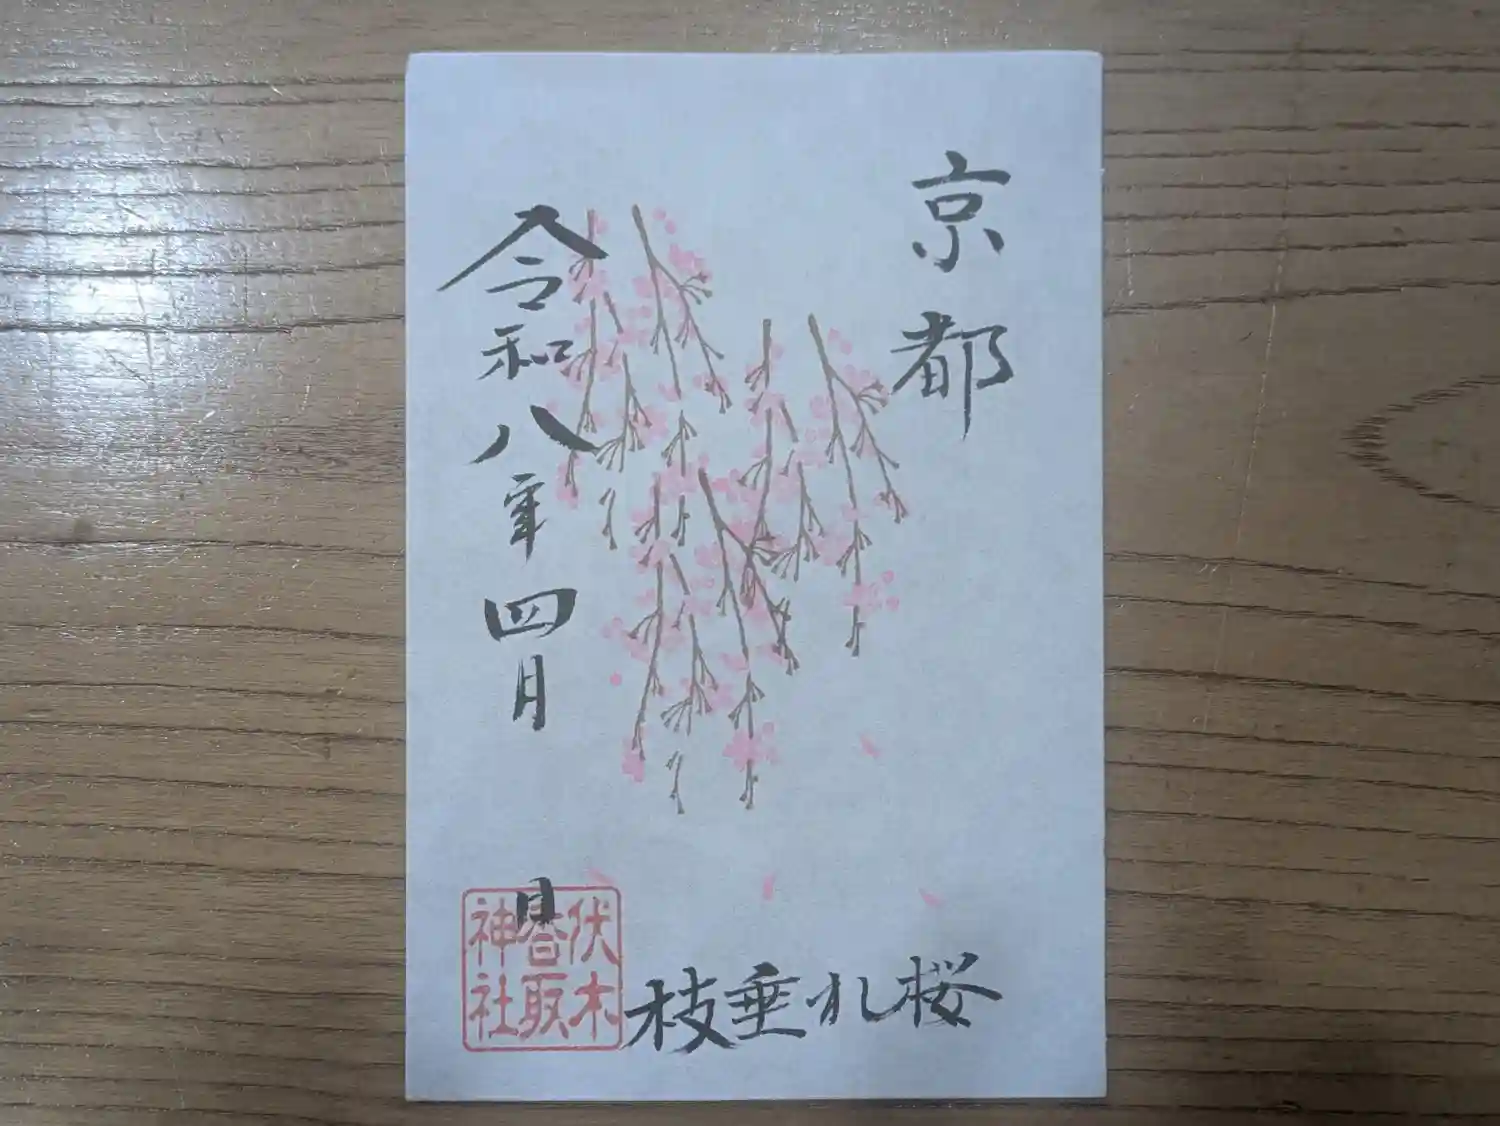 京都
令和八年四月 日
枝垂れ桜
伏木
香取
神社